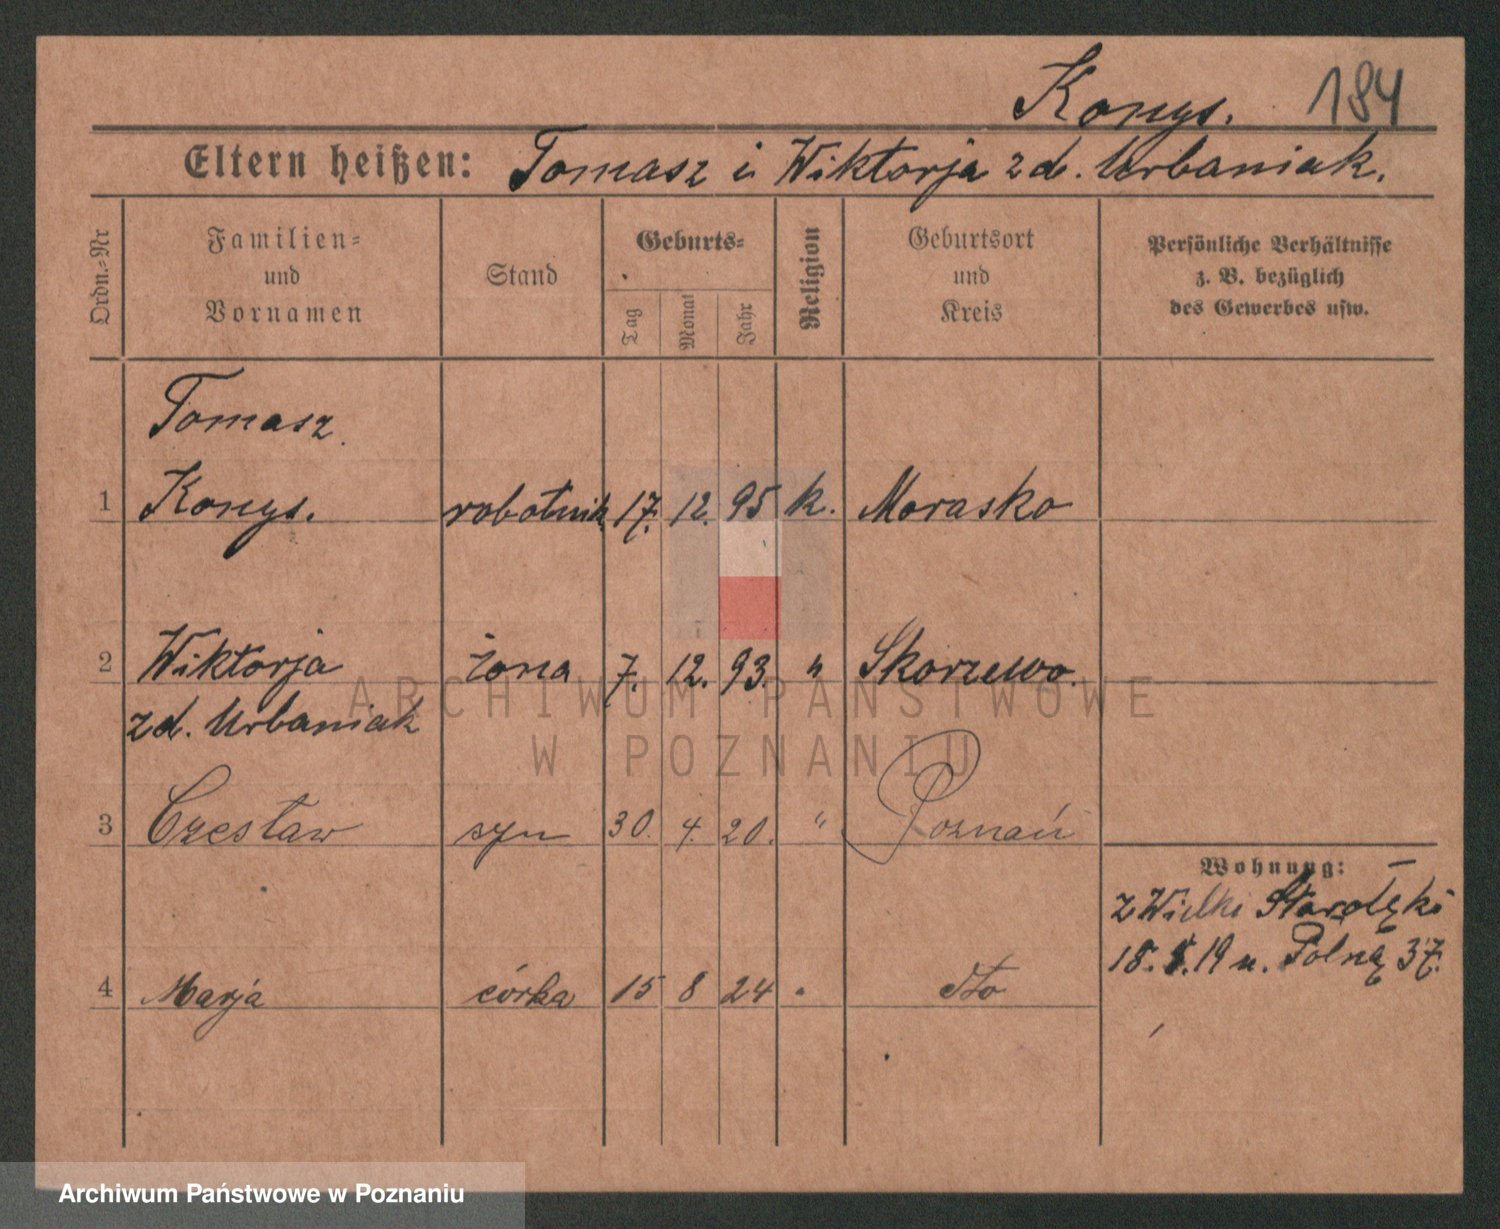 Konys. 184
Eltern heißen: Tomasz i Wiktorja zd. Urbaniak.
Ordn.-Nr
Familien-
und
Vornamen
Stand
Geburts-
Tag
Monat
Jahr
Religion
Geburtsort
und
Kreis
Persönliche Verhältnisse
z. B. bezüglich
des Gewerbes usw.
Tomasz
1 Konys. robotnik 17. 12. 95 k. Morasko
2 Wiktorja żona 7. 12. 93. " Skorzewo.
zd. Urbaniak
ARCHIWUM PAŃSTWOWE
W POZNANIU
3 Czesław syn 30. 4. 20. " Poznań
Wohnung:
z Wielki Starołęki
18. 19 u. Polną 37.
4 Marja córka 15 8 24 " dto
Archiwum Państwowe w Poznaniu